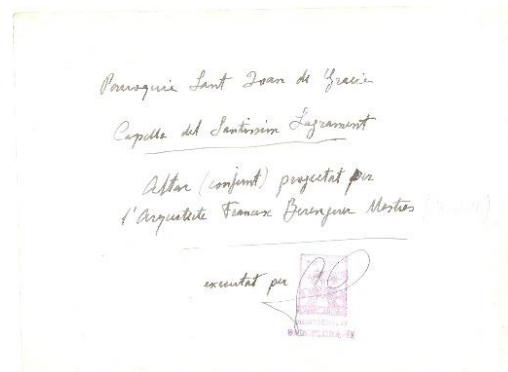 Parroquia Sant Joan de Gracia
Capella del Santissim Sagrament
Altar (conjunt) projectat per
l'Arquitecte Francesc Berenguer Mestres
executat per
BARCELONA